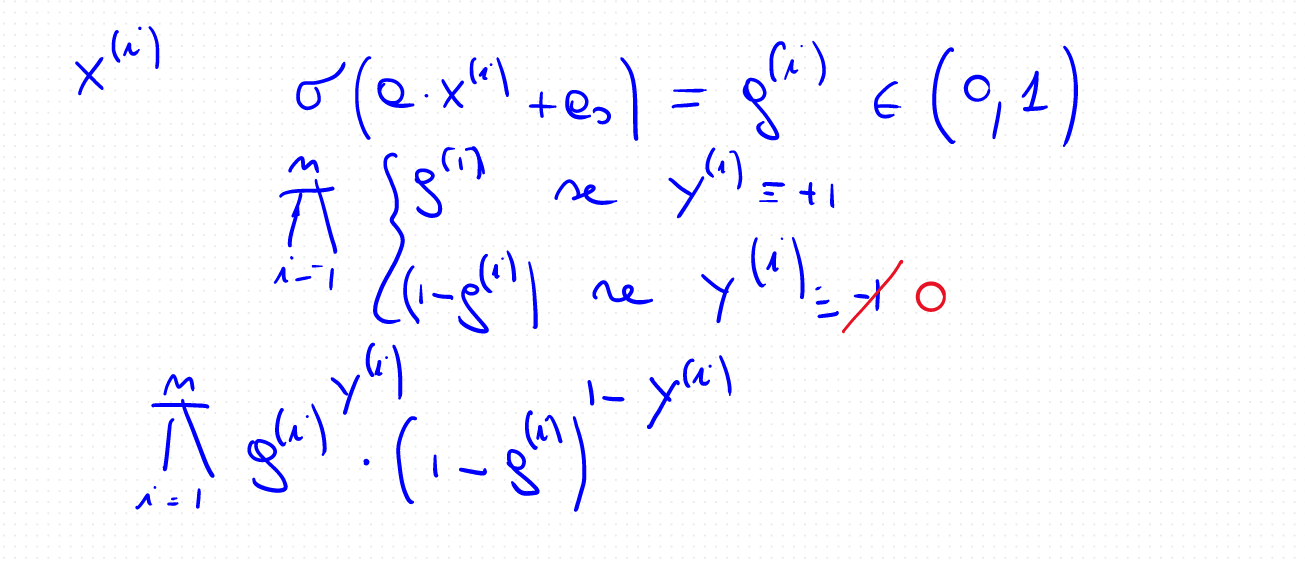 x^(i) σ(θ·x^(i) + θ₀) = g^(i) ∈ (0,1)
n ∏ i=1 { g^(i) se y^(i) ≡ +1
(1-g^(i)) se y^(i) ≡ -1 0
n ∏ i=1 g^(i) y^(i) · (1 - g^(i)) 1 - y^(i)